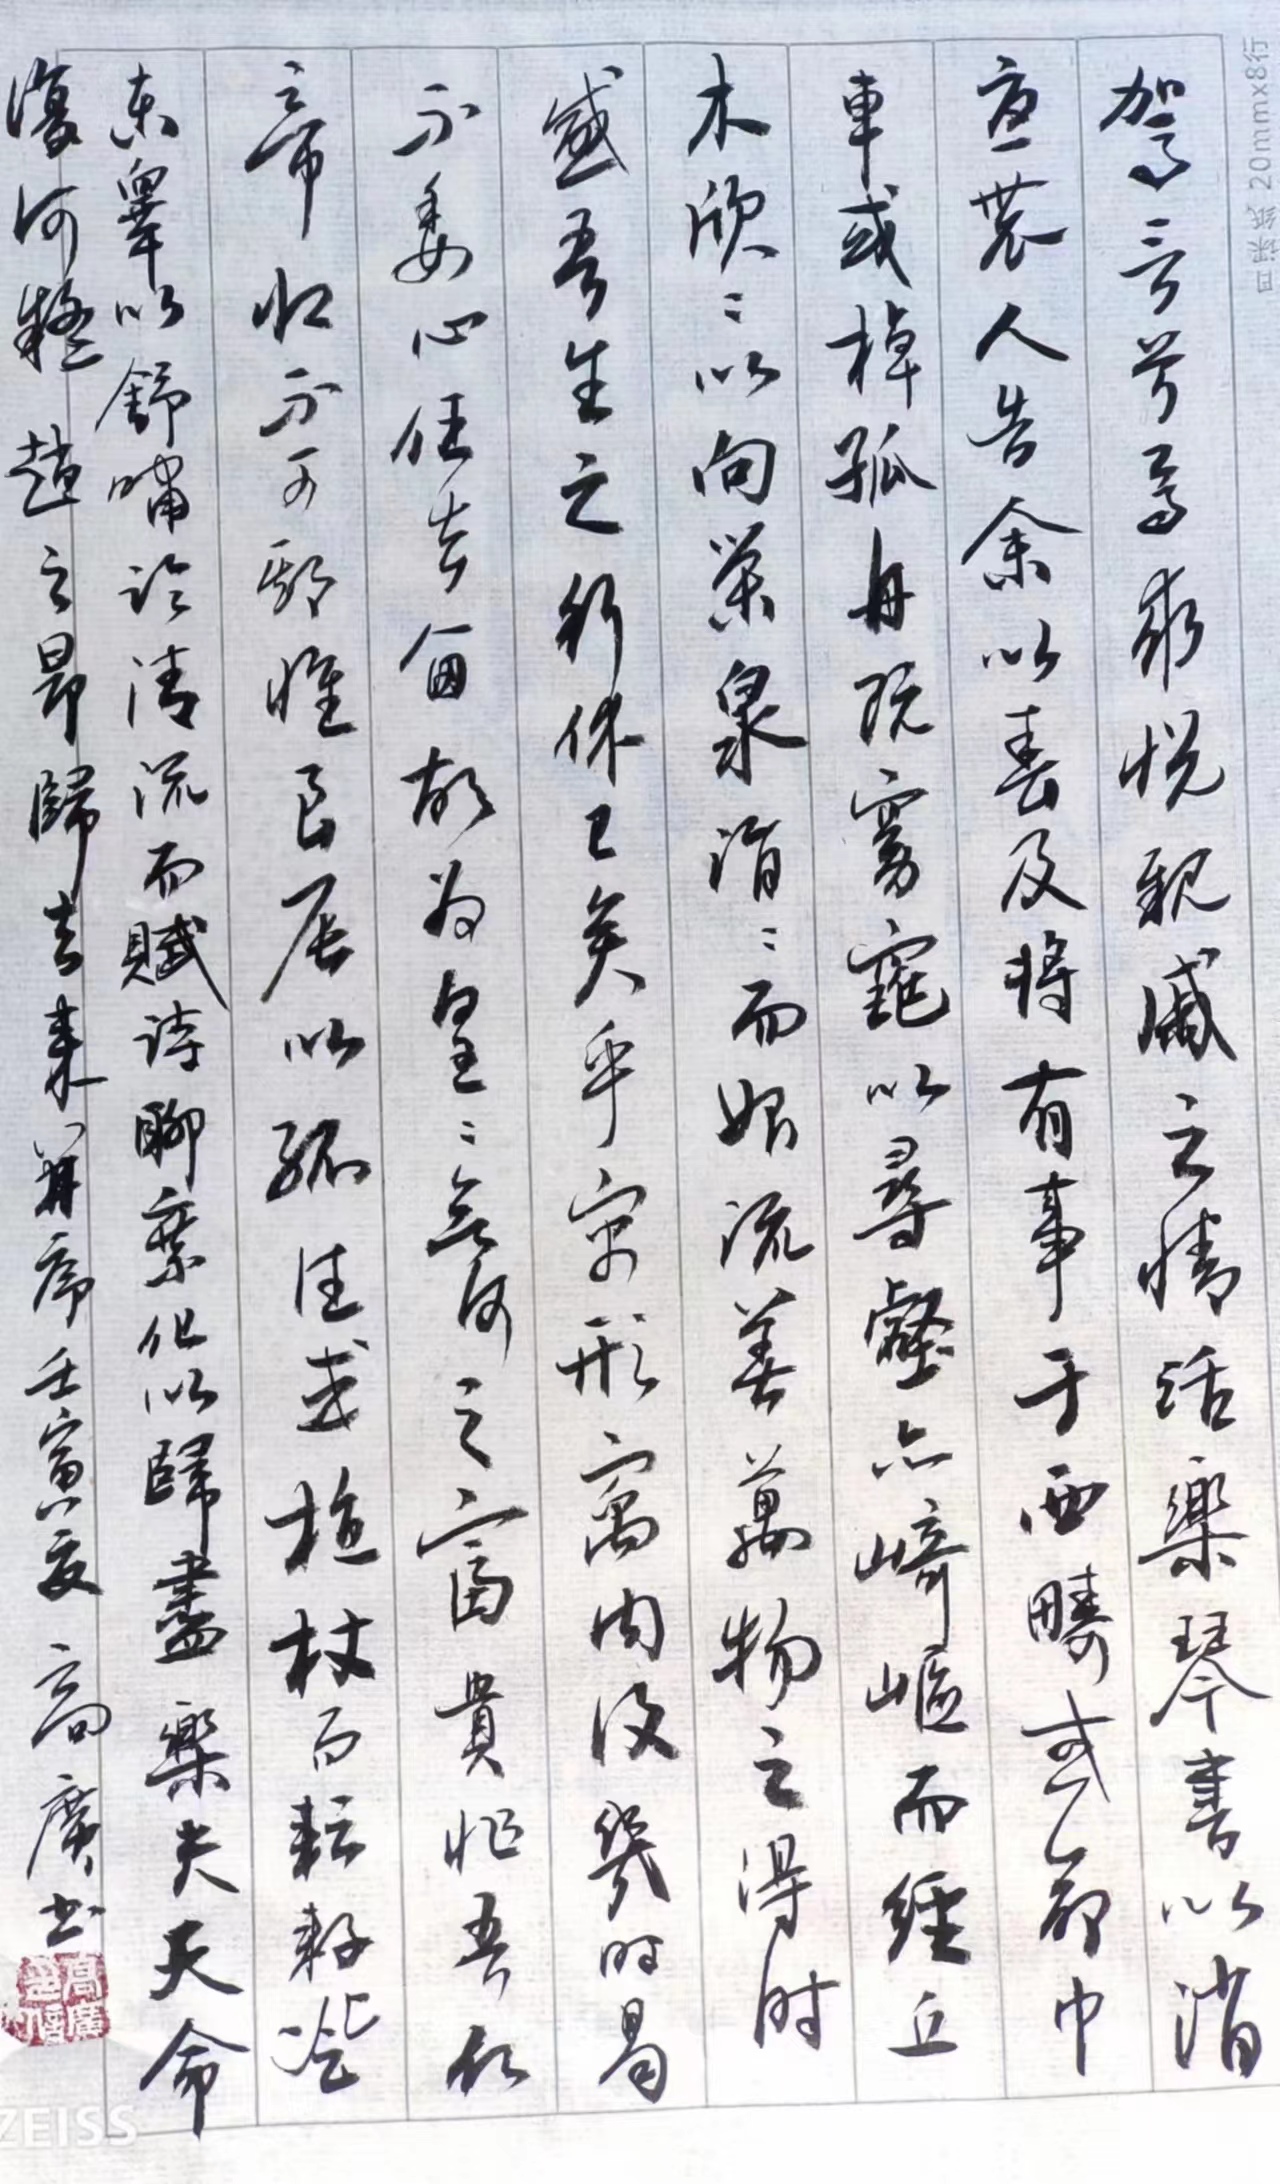 驾言兮焉求悦親戚之情话樂琴書以消
憂農人告余以春及将有事于西疇或命巾
車或棹孤舟既窈窕以尋壑亦崎嶇而經丘
木欣〻以向榮泉涓〻而始流善萬物之得时
感吾生之行休已矣乎寓形寓内復幾时曷
不委心任去留胡为皇〻何之富貴非吾願
帝鄉不可期懷良辰以孤往或植杖而耘耔登
東皋以舒嘯臨清流而賦诗聊乘化以歸盡樂夫天命
復何疑 趙之昂歸去来并序壬寅夏 高廣书
高廣印信
ZEISS
20mmx8行